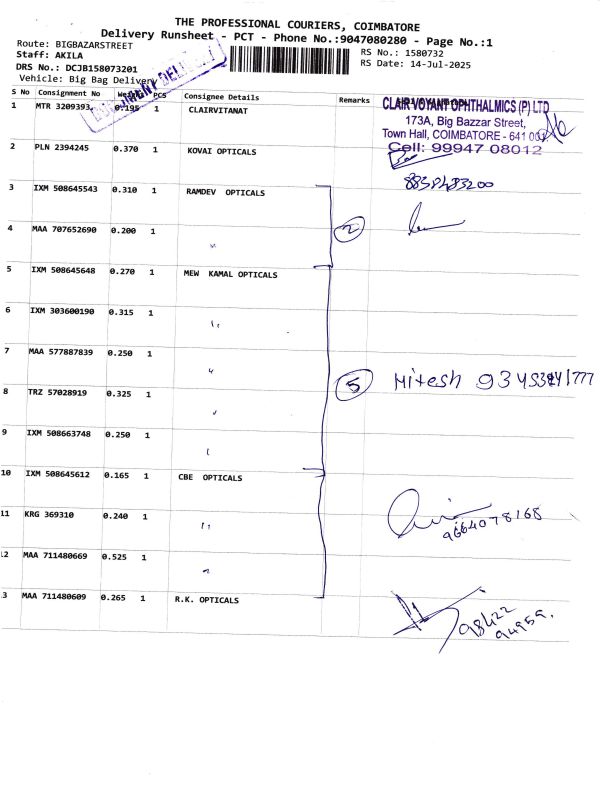 THE PROFESSIONAL COURIERS, COIMBATORE
Delivery Runsheet - PCT - Phone No.:9047080280 - Page No.:1
Route: BIGBAZARSTREET
Staff: AKILA
DRS No.: DCJB158073201
Vehicle: Big Bag Delivery
RS No.: 1580732
RS Date: 14-Jul-2025
S No Consignment No Weight PCS Consignee Details Remarks
1 MTR 3209393 0.195 1 CLAIRVITANAT
CLAIR VOYANT OPHTHALMICS (P) LTD
173A, Big Bazzar Street,
Town Hall, COIMBATORE - 641 001.
Cell: 99947 08012
2 PLN 2394245 0.370 1 KOVAI OPTICALS
3 IXM 508645543 0.310 1 RAMDEV OPTICALS
8838483200
4 MAA 707652690 0.200 1 "
2
5 IXM 508645648 0.270 1 MEW KAMAL OPTICALS
6 IXM 303600190 0.315 1 "
7 MAA 577887839 0.250 1 "
5 Hitesh
8 TRZ 57028919 0.325 1 "
9 IXM 508663748 0.250 1
10 IXM 508645612 0.165 1 CBE OPTICALS
11 KRG 369310 0.240 1 "
9664078168
12 MAA 711480669 0.525 1 "
13 MAA 711480609 0.265 1 R.K. OPTICALS
98422
94959.